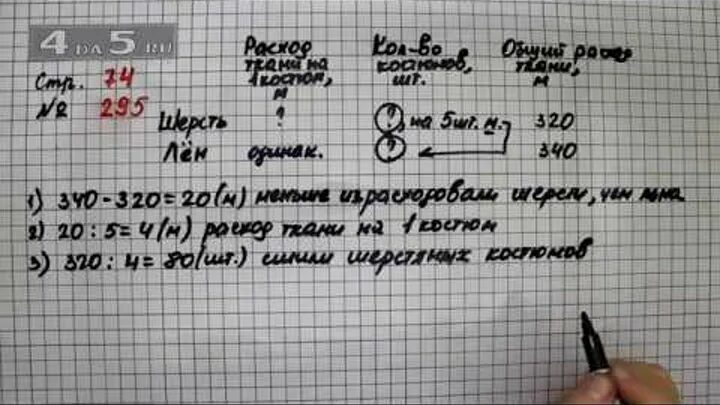 4 DA 5 RU
Стр. 74
№ 295
Расход ткани на 1 костюм, м
Кол-во костюмов, шт.
Общий расход ткани, м
Шерсть ? ?, на 5шт. м. 320
Лён одинак. ? 340
1) 340-320=20(м) меньше израсходовали шерсти, чем льна
2) 20:5=4(м) расход ткани на 1 костюм
3) 320:4=80(шт.) сшили шерстяных костюмов